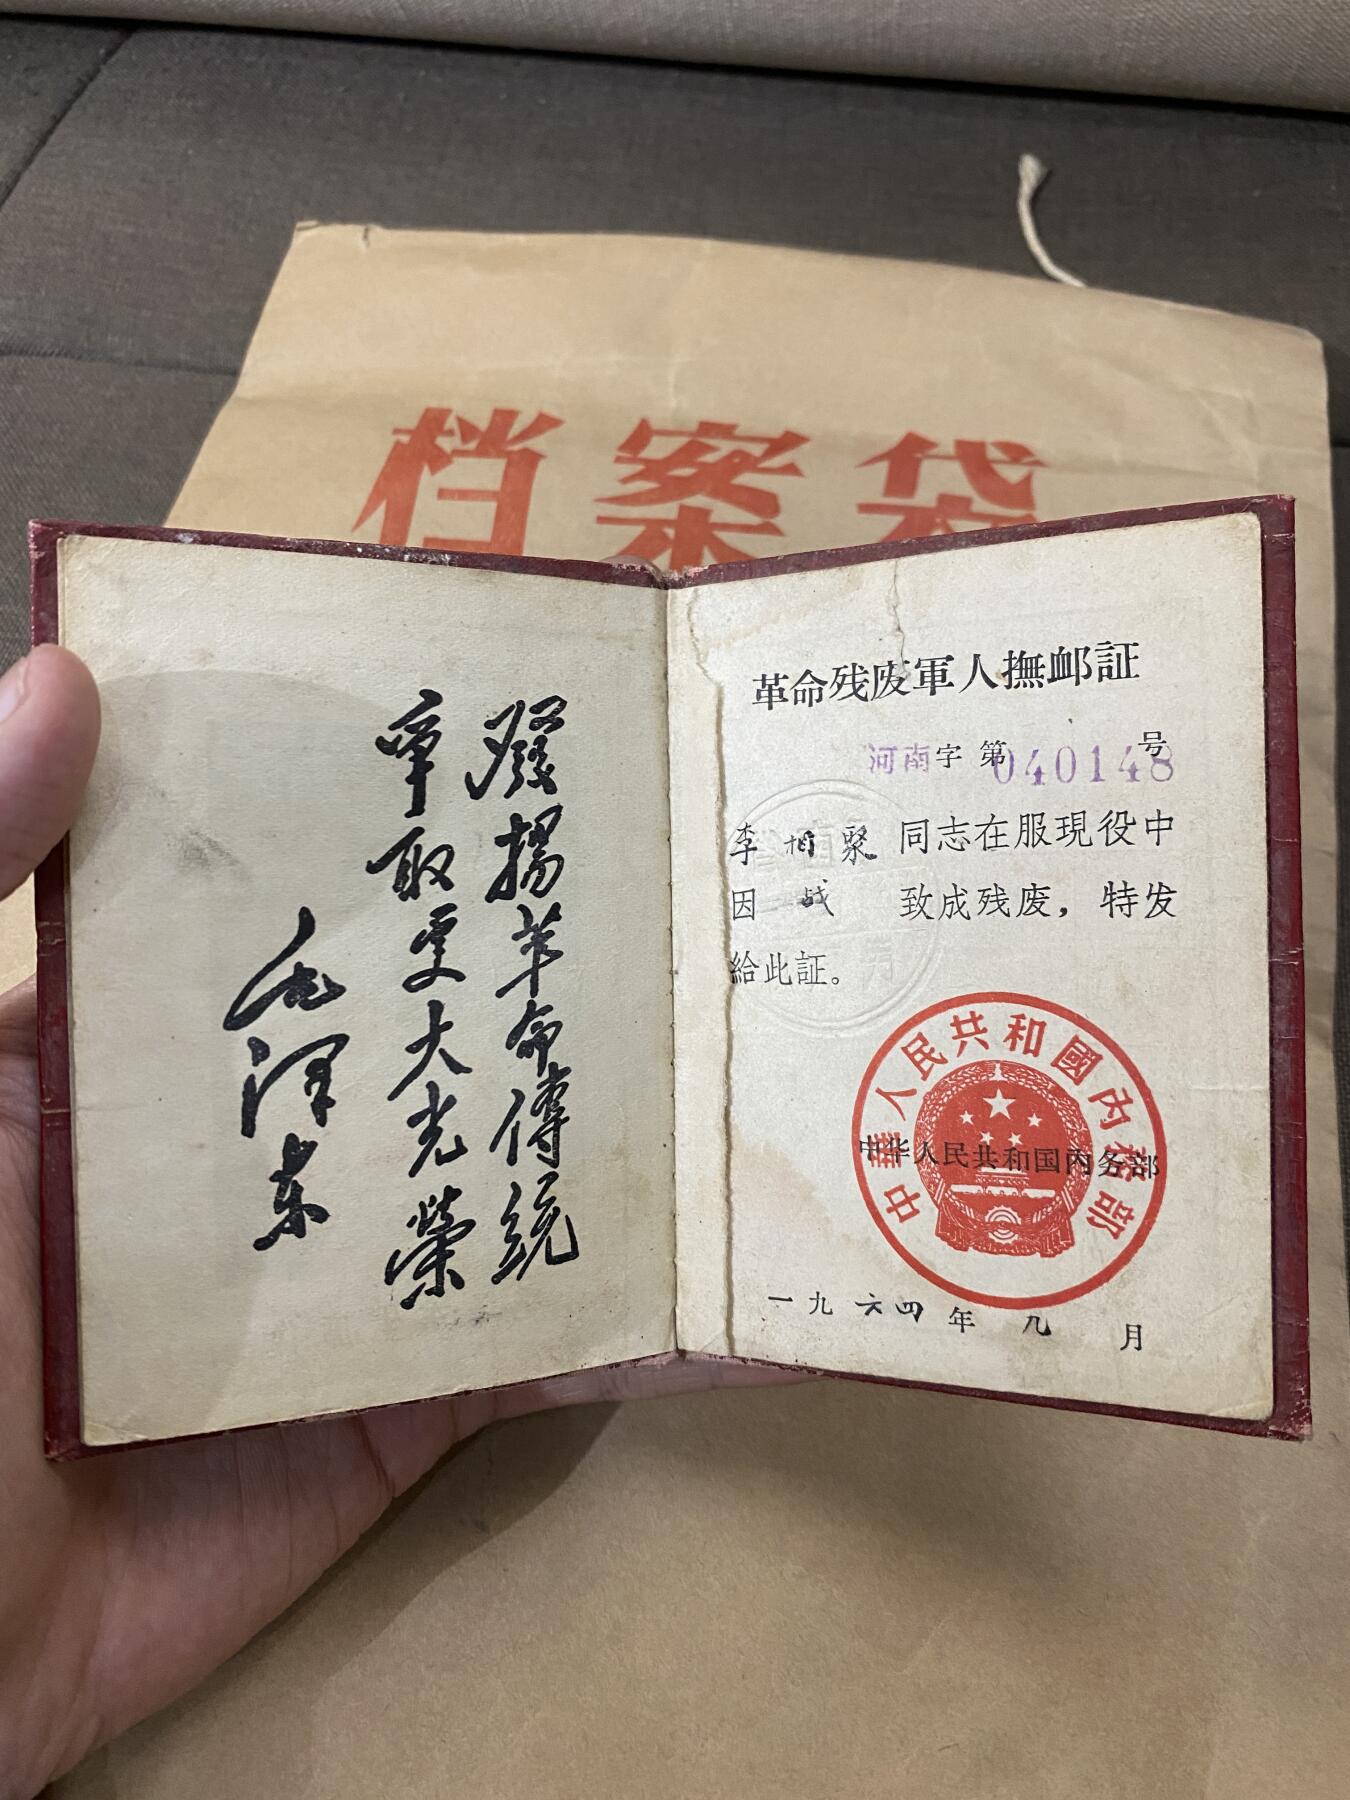 档案袋
發揚革命傳統
爭取更大光榮
毛澤东
革命残废軍人撫邺証
河南字第040148号
李相聚同志在服現役中
因战致成残废，特发
給此証。
中華人民共和國內務部
中华人民共和国内务部
一九六四年九月